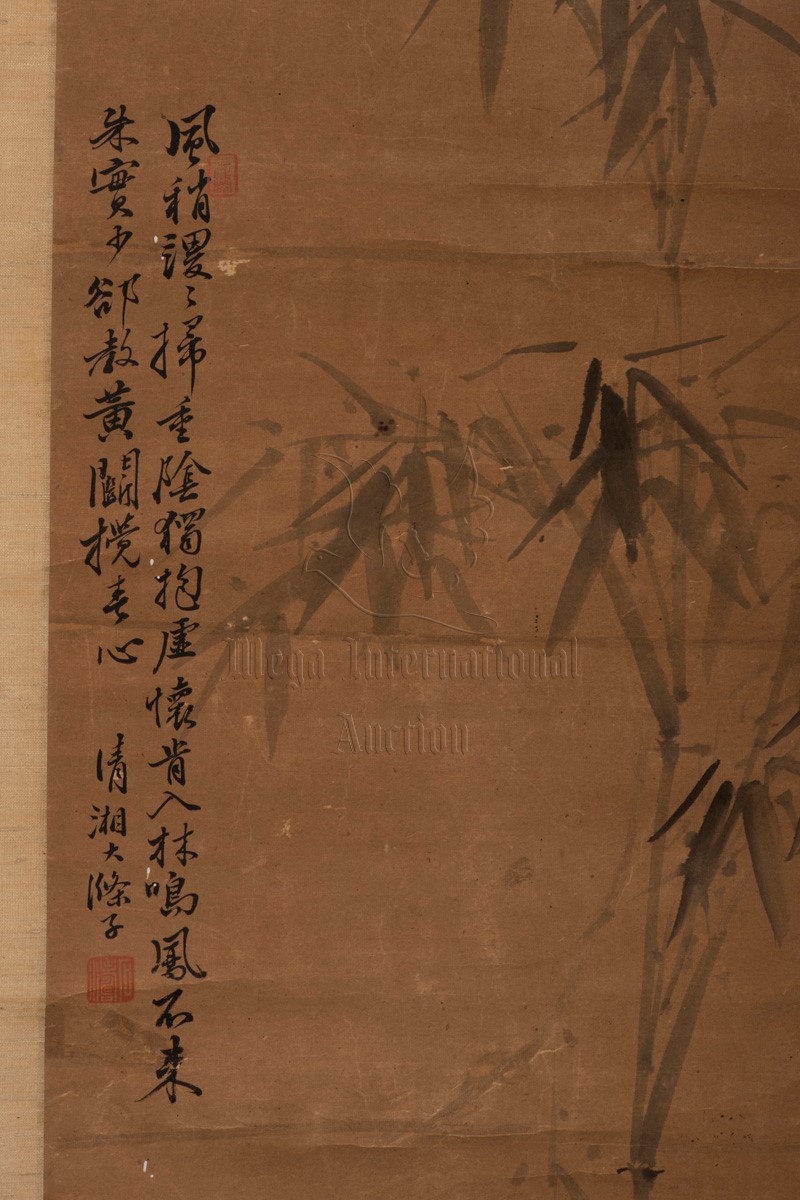 風稍謖〻掃重陰獨抱虛懷肯入林鳴鳳不來
朱實少卻教黃鸝攪春心
清湘大滌子
Mega International
Auction